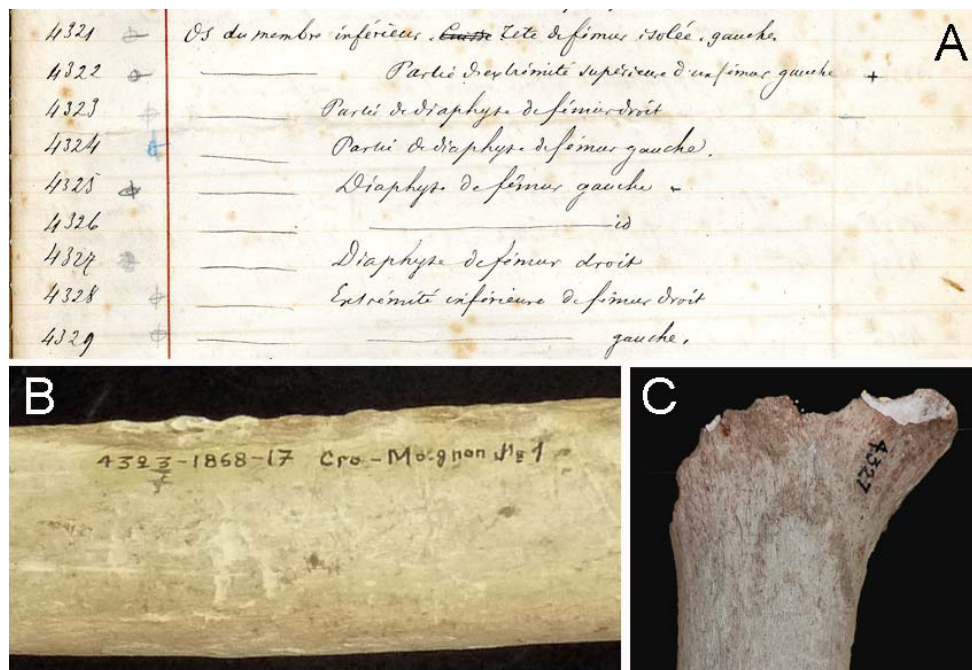 4321 Os du membre inférieur. Tete de fémur isolée. gauche. A
4322 Partie d'extrémité supérieure d'un fémur gauche +
4323 Partie de diaphyse de fémur droit
4324 Partie de diaphyse de fémur gauche.
4325 Diaphyse de fémur gauche
4326 id
4327 Diaphyse de fémur droit
4328 Extrémité inférieure de fémur droit
4329 gauche.
B
4323-1868-17 Cro-Magnon № 1
C
4327